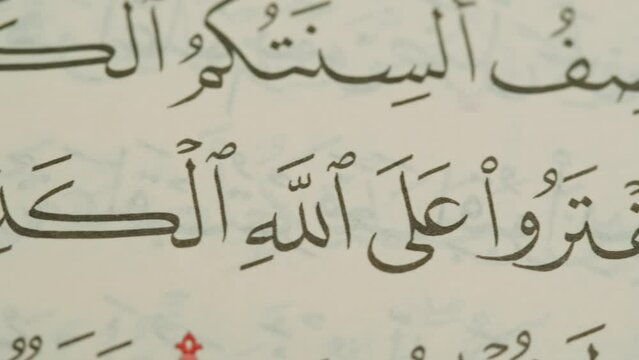 صِفُ أَلْسِنَتُكُمُ ٱلْكَـ
فْتَرُوا۟ عَلَى ٱللَّهِ ٱلْكَذِ